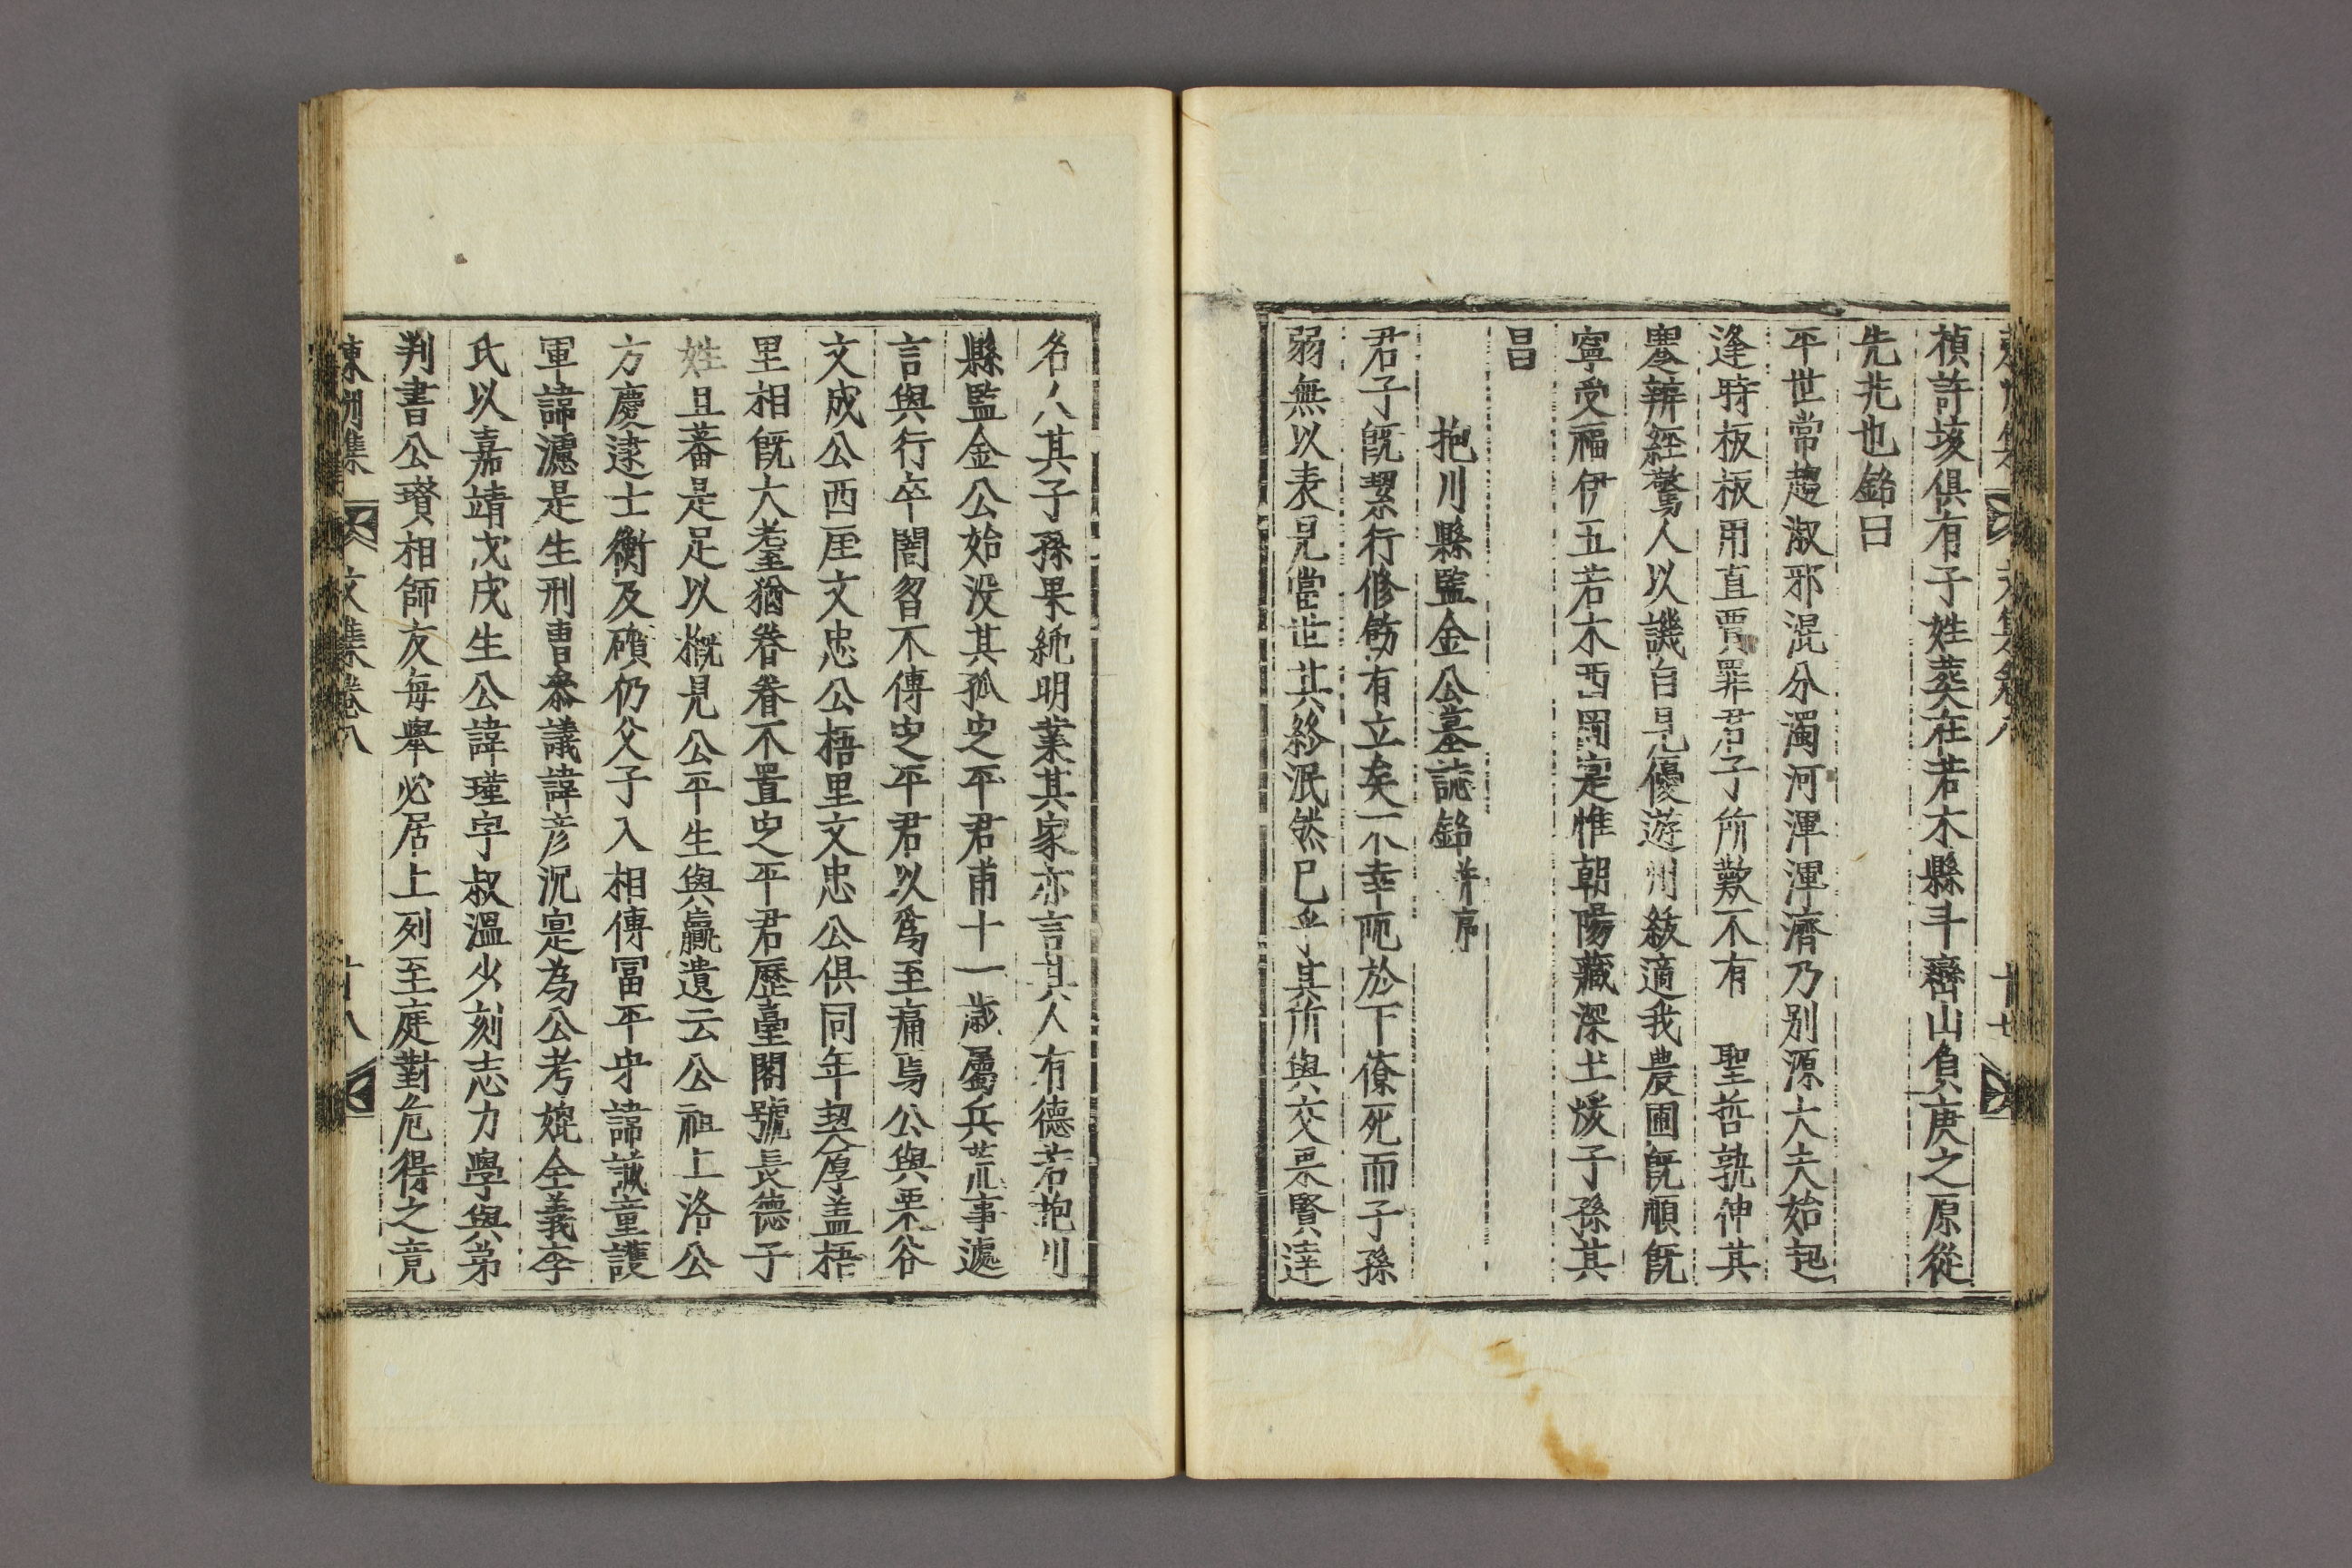 禎許垓俱有子姓葬在若木縣斗巒山負庚之原從
先兆也銘曰
平世常趨淑邪混分濁河渾渾濟乃別源大夫始起
逢時板板用直賈罪君子所歎不有　聖哲孰伸其
塵辨經驚人以譏自見優遊州紱適我農圃旣順旣
寧受福伊五若木西岡寔惟朝陽藏深土煖子孫其
昌
抱川縣監金公墓誌銘幷序
君子旣絜行修飭有立矣不幸阨於下僚死而子孫
弱無以表見當世其終泯然已乎其所與交果賢達
名人其子孫果純明業其家亦言其人有德若抱川
縣監金公始沒其孤史平君甫十一歲屬兵荒事遽
言與行卒闇習不傳史平君以爲至痛焉公與栗谷
文成公西厓文忠公梧里文忠公俱同年契厚盖梧
里相旣大耋猶眷眷不置史平君歷臺閣號長德子
姓且蕃是足以槪見公平生與贏遺云公祖上洛公
方慶逮士衡及礩仍父子入相傳冨平守諱誠童護
軍諱濾是生刑曹叅議諱彦沉寔爲公考媲全義李
氏以嘉靖戊戌生公諱瑾字叔溫少刻志力學與弟
判書公瓚相師友每擧必居上列至庭對危得之竟
東州集　文集卷八　十八